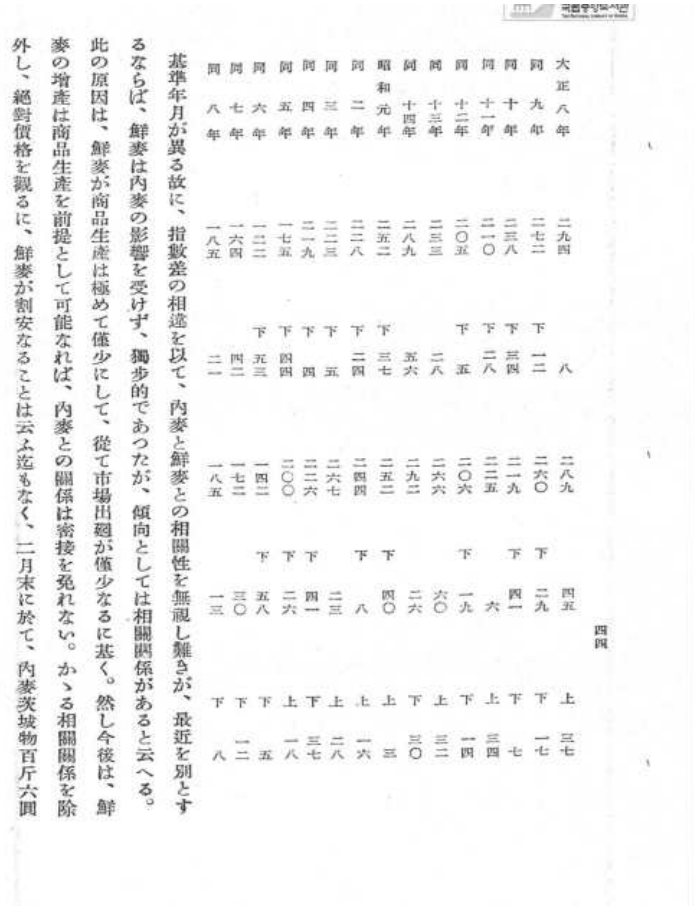 국립중앙도서관
The National Library of Korea
四四
大正八年 二九四 八 二八九 四五 上 三七
同九年 二七二 下 一二 二六〇 下 二九 下 一七
同十年 二三八 下 三四 二一九 下 四一 下 七
同十一年 二一〇 下 二八 二二五 六 上 三四
同十二年 二〇五 下 五 二〇六 下 一九 下 一四
同十三年 二三三 二八 二六六 六〇 上 三二
同十四年 二八九 五六 二九二 二六 下 三〇
昭和元年 二五二 下 三七 二五二 下 四〇 上 三
同二年 二二八 下 二四 二四四 下 八 上 一六
同三年 二二三 下 五 二六七 二三 上 二八
同四年 二一九 下 四 二二六 下 四一 下 三七
同五年 一七五 下 四四 二〇〇 下 二六 上 一八
同六年 一二二 下 五三 一四二 下 五八 下 五
同七年 一六四 四二 一七二 三〇 下 一二
同八年 一八五 二一 一八五 一三 下 八
基準年月が異る故に、指數差の相違を以て、內麥と鮮麥との相關性を無視し難きが、最近を別とす
るならば、鮮麥は內麥の影響を受けず、獨步的であつたが、傾向としては相關關係があると云へる。
此の原因は、鮮麥が商品生產は極めて僅少にして、從て市場出廻が僅少なるに基く。然し今後は、鮮
麥の增產は商品生產を前提として可能なれば、內麥との關係は密接を免れない。かゝる相關關係を除
外し、絕對價格を觀るに、鮮麥が割安なることは云ふ迄もなく、二月末に於て、內麥茨城物百斤六圓